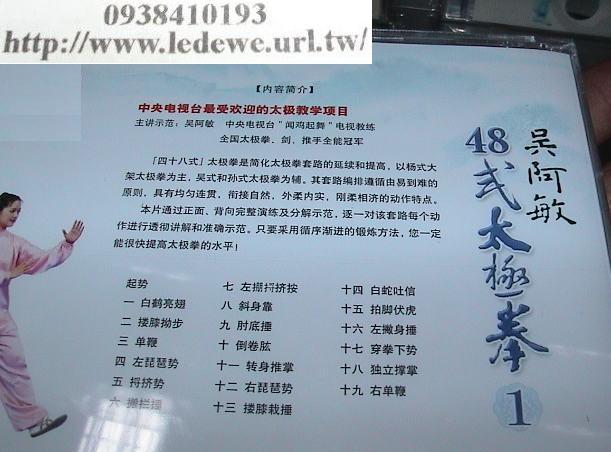 0938410193
http://www.ledewe.url.tw/
【内容简介】
中央电视台最受欢迎的太极教学项目
主讲示范：吴阿敏 中央电视台"闻鸡起舞"电视教练
全国太极拳、剑、推手全能冠军
「四十八式」太极拳是简化太极拳套路的延续和提高，以杨式大
架太极拳为主，吴式和孙式太极拳为辅。其套路编排遵循由易到难的
原则，具有均匀连贯，衔接自然，外柔内实，刚柔相济的动作特点。
本片通过正面、背向完整演练及分解示范，逐一对该套路每个动
作进行透彻讲解和准确示范。只要采用循序渐进的锻炼方法，您一定
能很快提高太极拳的水平！
起势
一 白鹤亮翅
二 搂膝拗步
三 单鞭
四 左琵琶势
五 捋挤势
六 搬拦捶
七 左掤捋挤按
八 斜身靠
九 肘底捶
十 倒卷肱
十一 转身推掌
十二 右琵琶势
十三 搂膝栽捶
十四 白蛇吐信
十五 拍脚伏虎
十六 左撇身捶
十七 穿拳下势
十八 独立撑掌
十九 右单鞭
吴阿敏
48式太極拳
1